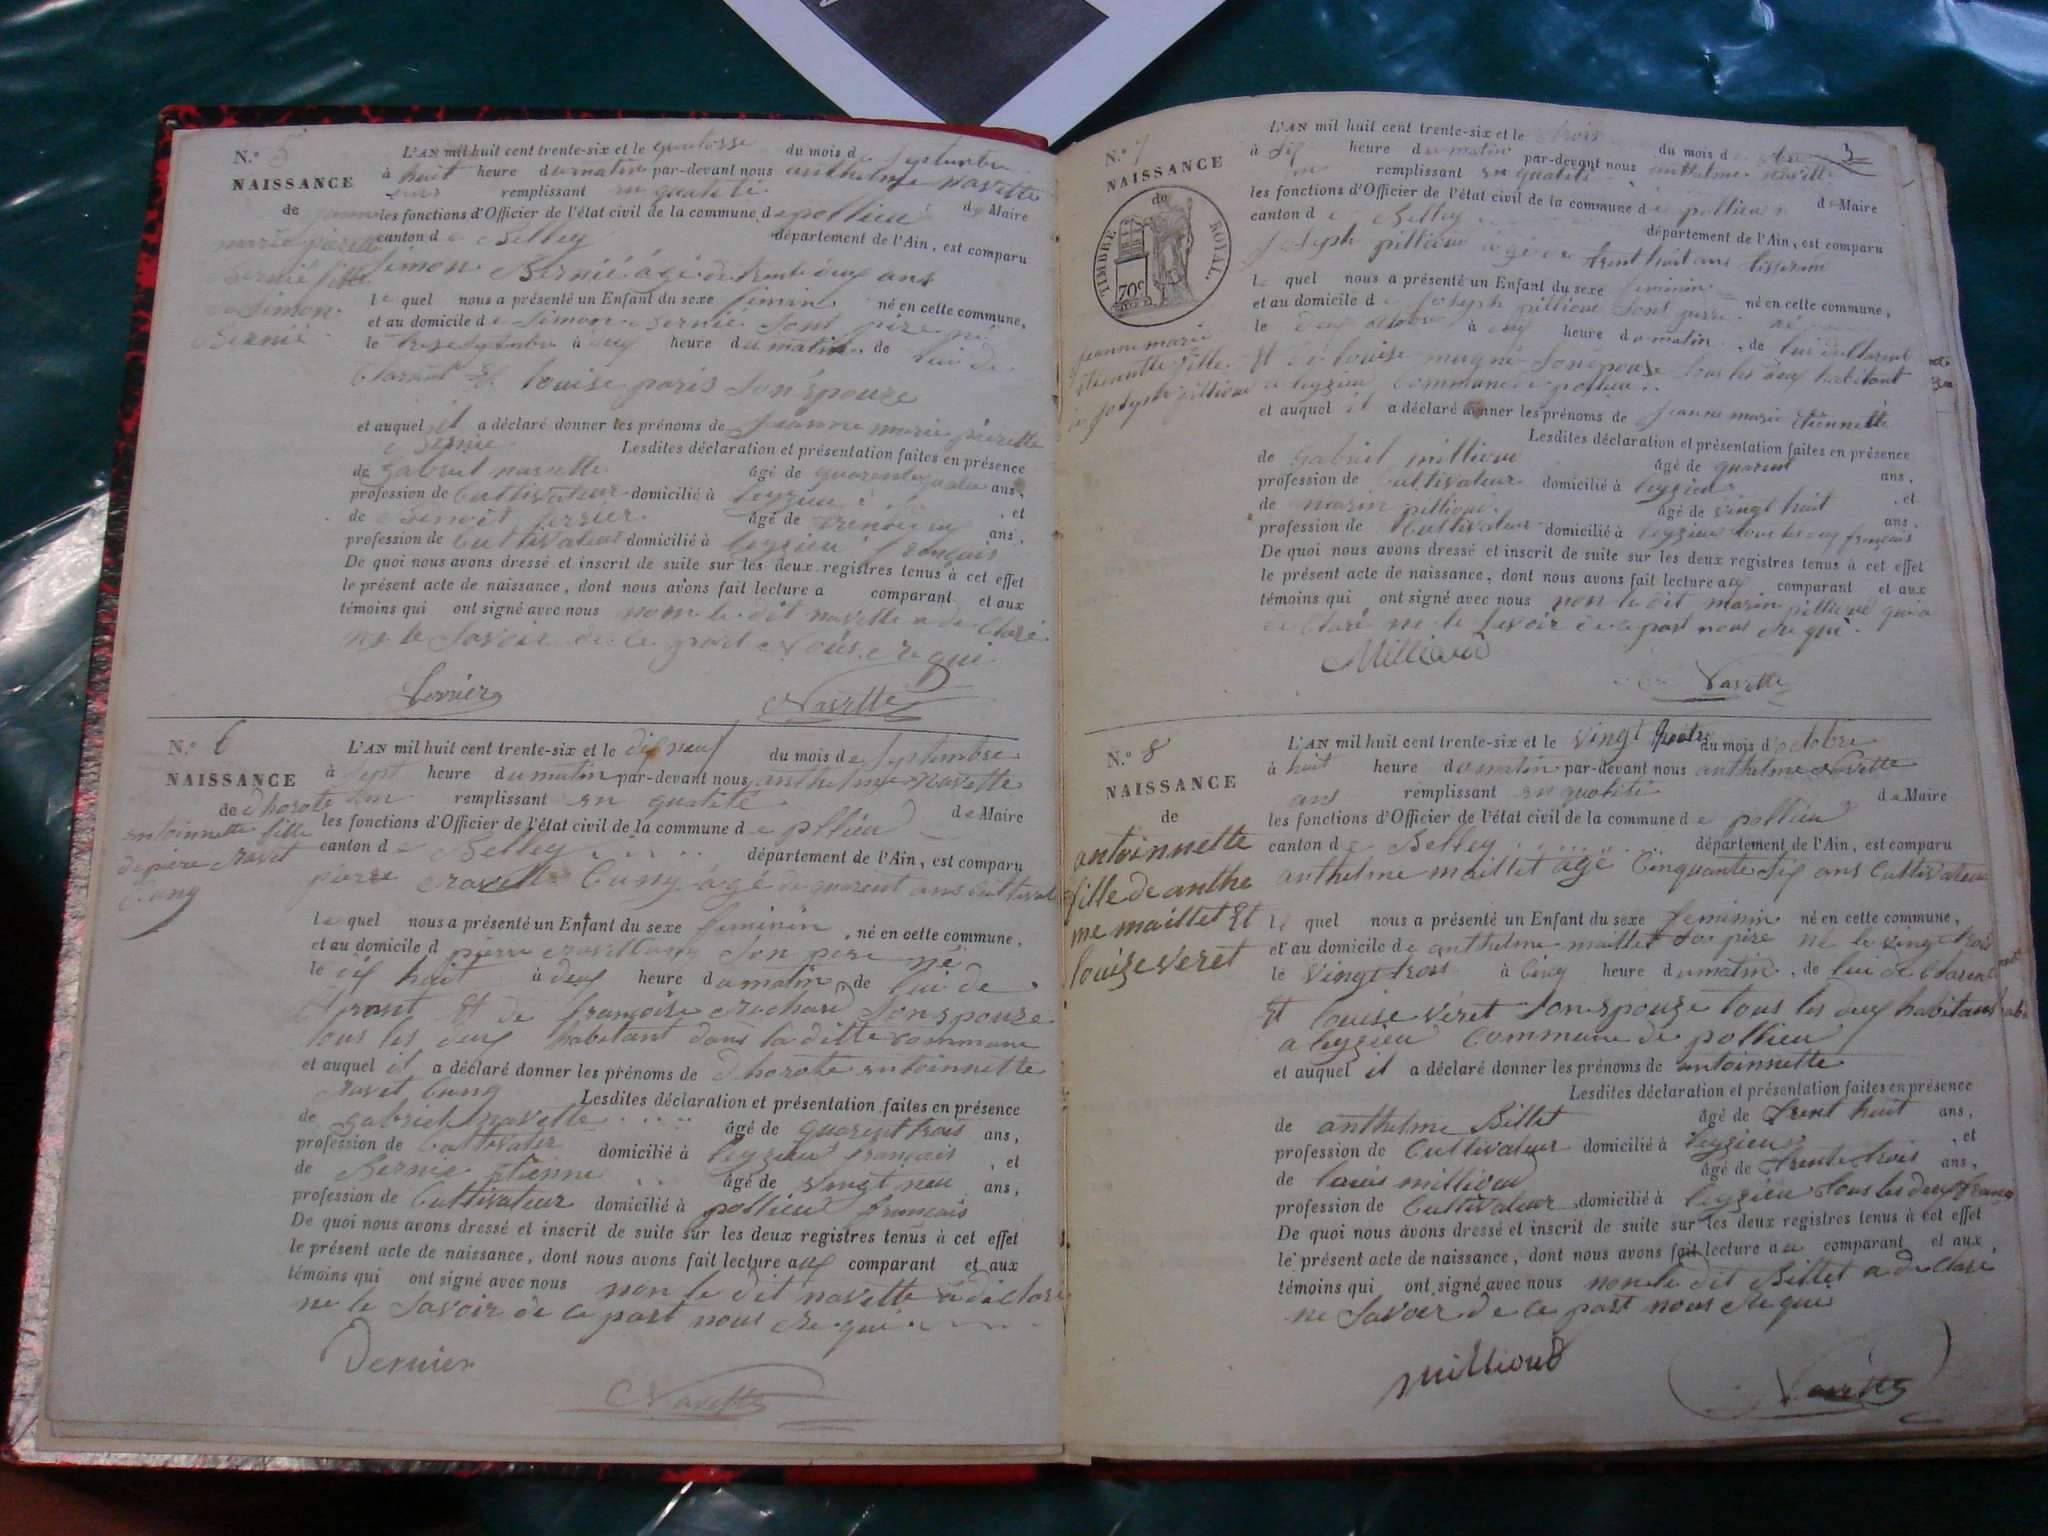 N.° 5
NAISSANCE
de jeanne
marie pierette
Bernié fille
de Simon
Bernié
L'AN mil huit cent trente-six et le quatorse du mois de Septembre
à huit heure du matin par-devant nous anthelme navette
remplissant en qualité
les fonctions d'Officier de l'état civil de la commune de pollieu de Maire
canton de Belley département de l'Ain, est comparu
Simon Bernié âgé de trente deux ans
le quel nous a présenté un Enfant du sexe feminin né en cette commune,
et au domicile de Simon Bernié Sont père né
le trese Septembre à deux heure du matin de lui de
Clarant Et louise paris Son Epouze
et auquel il a déclaré donner les prénoms de jeanne marie pierette
Bernié Lesdites déclaration et présentation faites en présence
de gabriel navette âgé de quarante ans,
profession de Cultivateur domicilié à leyzieu , et
de Benoit ferrier âgé de ans,
profession de Cultivateur domicilié à leyzieu français
De quoi nous avons dressé et inscrit de suite sur les deux registres tenus à cet effet
le présent acte de naissance, dont nous avons fait lecture a comparant et aux
témoins qui ont signé avec nous non le dit navette a de Claré
ne le Savoir de ce part Nous re qui
Navette
N.° 6
NAISSANCE
de dhorote
antoinnette fille
de pierre ravet
Cung
L'AN mil huit cent trente-six et le dix neuf du mois de Septembre
à sept heure du matin par-devant nous anthelme navette
remplissant en qualité
les fonctions d'Officier de l'état civil de la commune de pollieu de Maire
canton de Belley département de l'Ain, est comparu
pierre Cung âgé de quarent ans Cultivat
le quel nous a présenté un Enfant du sexe feminin né en cette commune,
et au domicile d pierre Son père né
le dix huit à deux heure du matin de lui de
Et de françoise rochard Son epouze
tous les deux habitant dans la ditte commune
et auquel il a déclaré donner les prénoms de dhorote antoinnette
ravet Cung Lesdites déclaration et présentation faites en présence
de gabriel navette âgé de quarent trois ans,
profession de Cultivater domicilié à leyzieu français , et
de Bernie Etienne âgé de vingt neu ans,
profession de Cultivateur domicilié à pollieu français
De quoi nous avons dressé et inscrit de suite sur les deux registres tenus à cet effet
le présent acte de naissance, dont nous avons fait lecture aux comparant et aux
témoins qui ont signé avec nous non le dit navette a de claré
ne le Savoir de ce part nous re qui
Navette
3
N.° 7
NAISSANCE
de
TIMBRE ROYAL.
70c
jeanne marie
etiennette fille
de joseph pillioud
L'AN mil huit cent trente-six et le trois du mois d
à dix heure du matin par-devant nous anthelme navette
remplissant en qualité
les fonctions d'Officier de l'état civil de la commune de pollieu de Maire
canton de Belley département de l'Ain, est comparu
joseph pillioud âgé de trent huit ans tisserant
le quel nous a présenté un Enfant du sexe feminin né en cette commune,
et au domicile de joseph pillioud Sont perre né
le deux octobre à deux heure du matin, de lui de Clarent
Et de louise mugné Son epouse tous les deux habitant
a leyzieu Commune de pollieu
et auquel il a déclaré donner les prénoms de jeanne marie étiennette
Lesdites déclaration et présentation faites en présence
de gabriel millioud âgé de quarent ans,
profession de Cultivateur domicilié à leyzieu , et
de marin pillioud âgé de vingt huit ans,
profession de Cultivateur domicilié à leyzieu tous les deux français
De quoi nous avons dressé et inscrit de suite sur les deux registres tenus à cet effet
le présent acte de naissance, dont nous avons fait lecture aux comparant et aux
témoins qui ont signé avec nous non le dit marin pillioud qui a
de Claré ne le Savoir de ce part nous re qui
Millioud
Navette
N.° 8
NAISSANCE
de
antoinnette
fille de anthe
me maillet Et
louize veret
L'AN mil huit cent trente-six et le vingt quatre du mois d'octobre
à huit heure du matin par-devant nous anthelme Navette
remplissant en qualité
les fonctions d'Officier de l'état civil de la commune de pollieu de Maire
canton de Belley département de l'Ain, est comparu
anthelme maillet âgé Cinquante Six ans Cultivateur
le quel nous a présenté un Enfant du sexe feminin né en cette commune,
et au domicile de anthelme maillet Son père né le vingt trois
le vingt trois à Cinq heure du matin, de lui de Clarent
Et louise véret Son epouze tous les deux habitant
a leyzieu Commune de pollieu
et auquel il a déclaré donner les prénoms de antoinnette
Lesdites déclaration et présentation faites en présence
de anthelme Billet âgé de trent huit ans,
profession de Cultivateur domicilié à leyzieu , et
de louis millioud âgé de trente trois ans,
profession de Cultivateur domicilié à leyzieu tous les deux
De quoi nous avons dressé et inscrit de suite sur les deux registres tenus à cet effet
le présent acte de naissance, dont nous avons fait lecture au comparant et aux
témoins qui ont signé avec nous non le dit Billet a de Claré
ne Savoir de ce part nous re qui
millioud
Navette